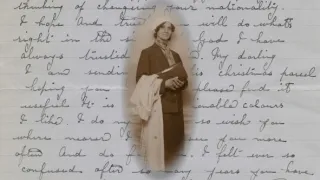 thinking of changing your nationality.
I hope and will do what's
right in the God I have
always trusted My darling
I am sendin is christmas parcel
hoping you please find it
useful It is colours
I like. I do so wish you
where nearer you more
often And do I felt ever so
confused after so many years you have